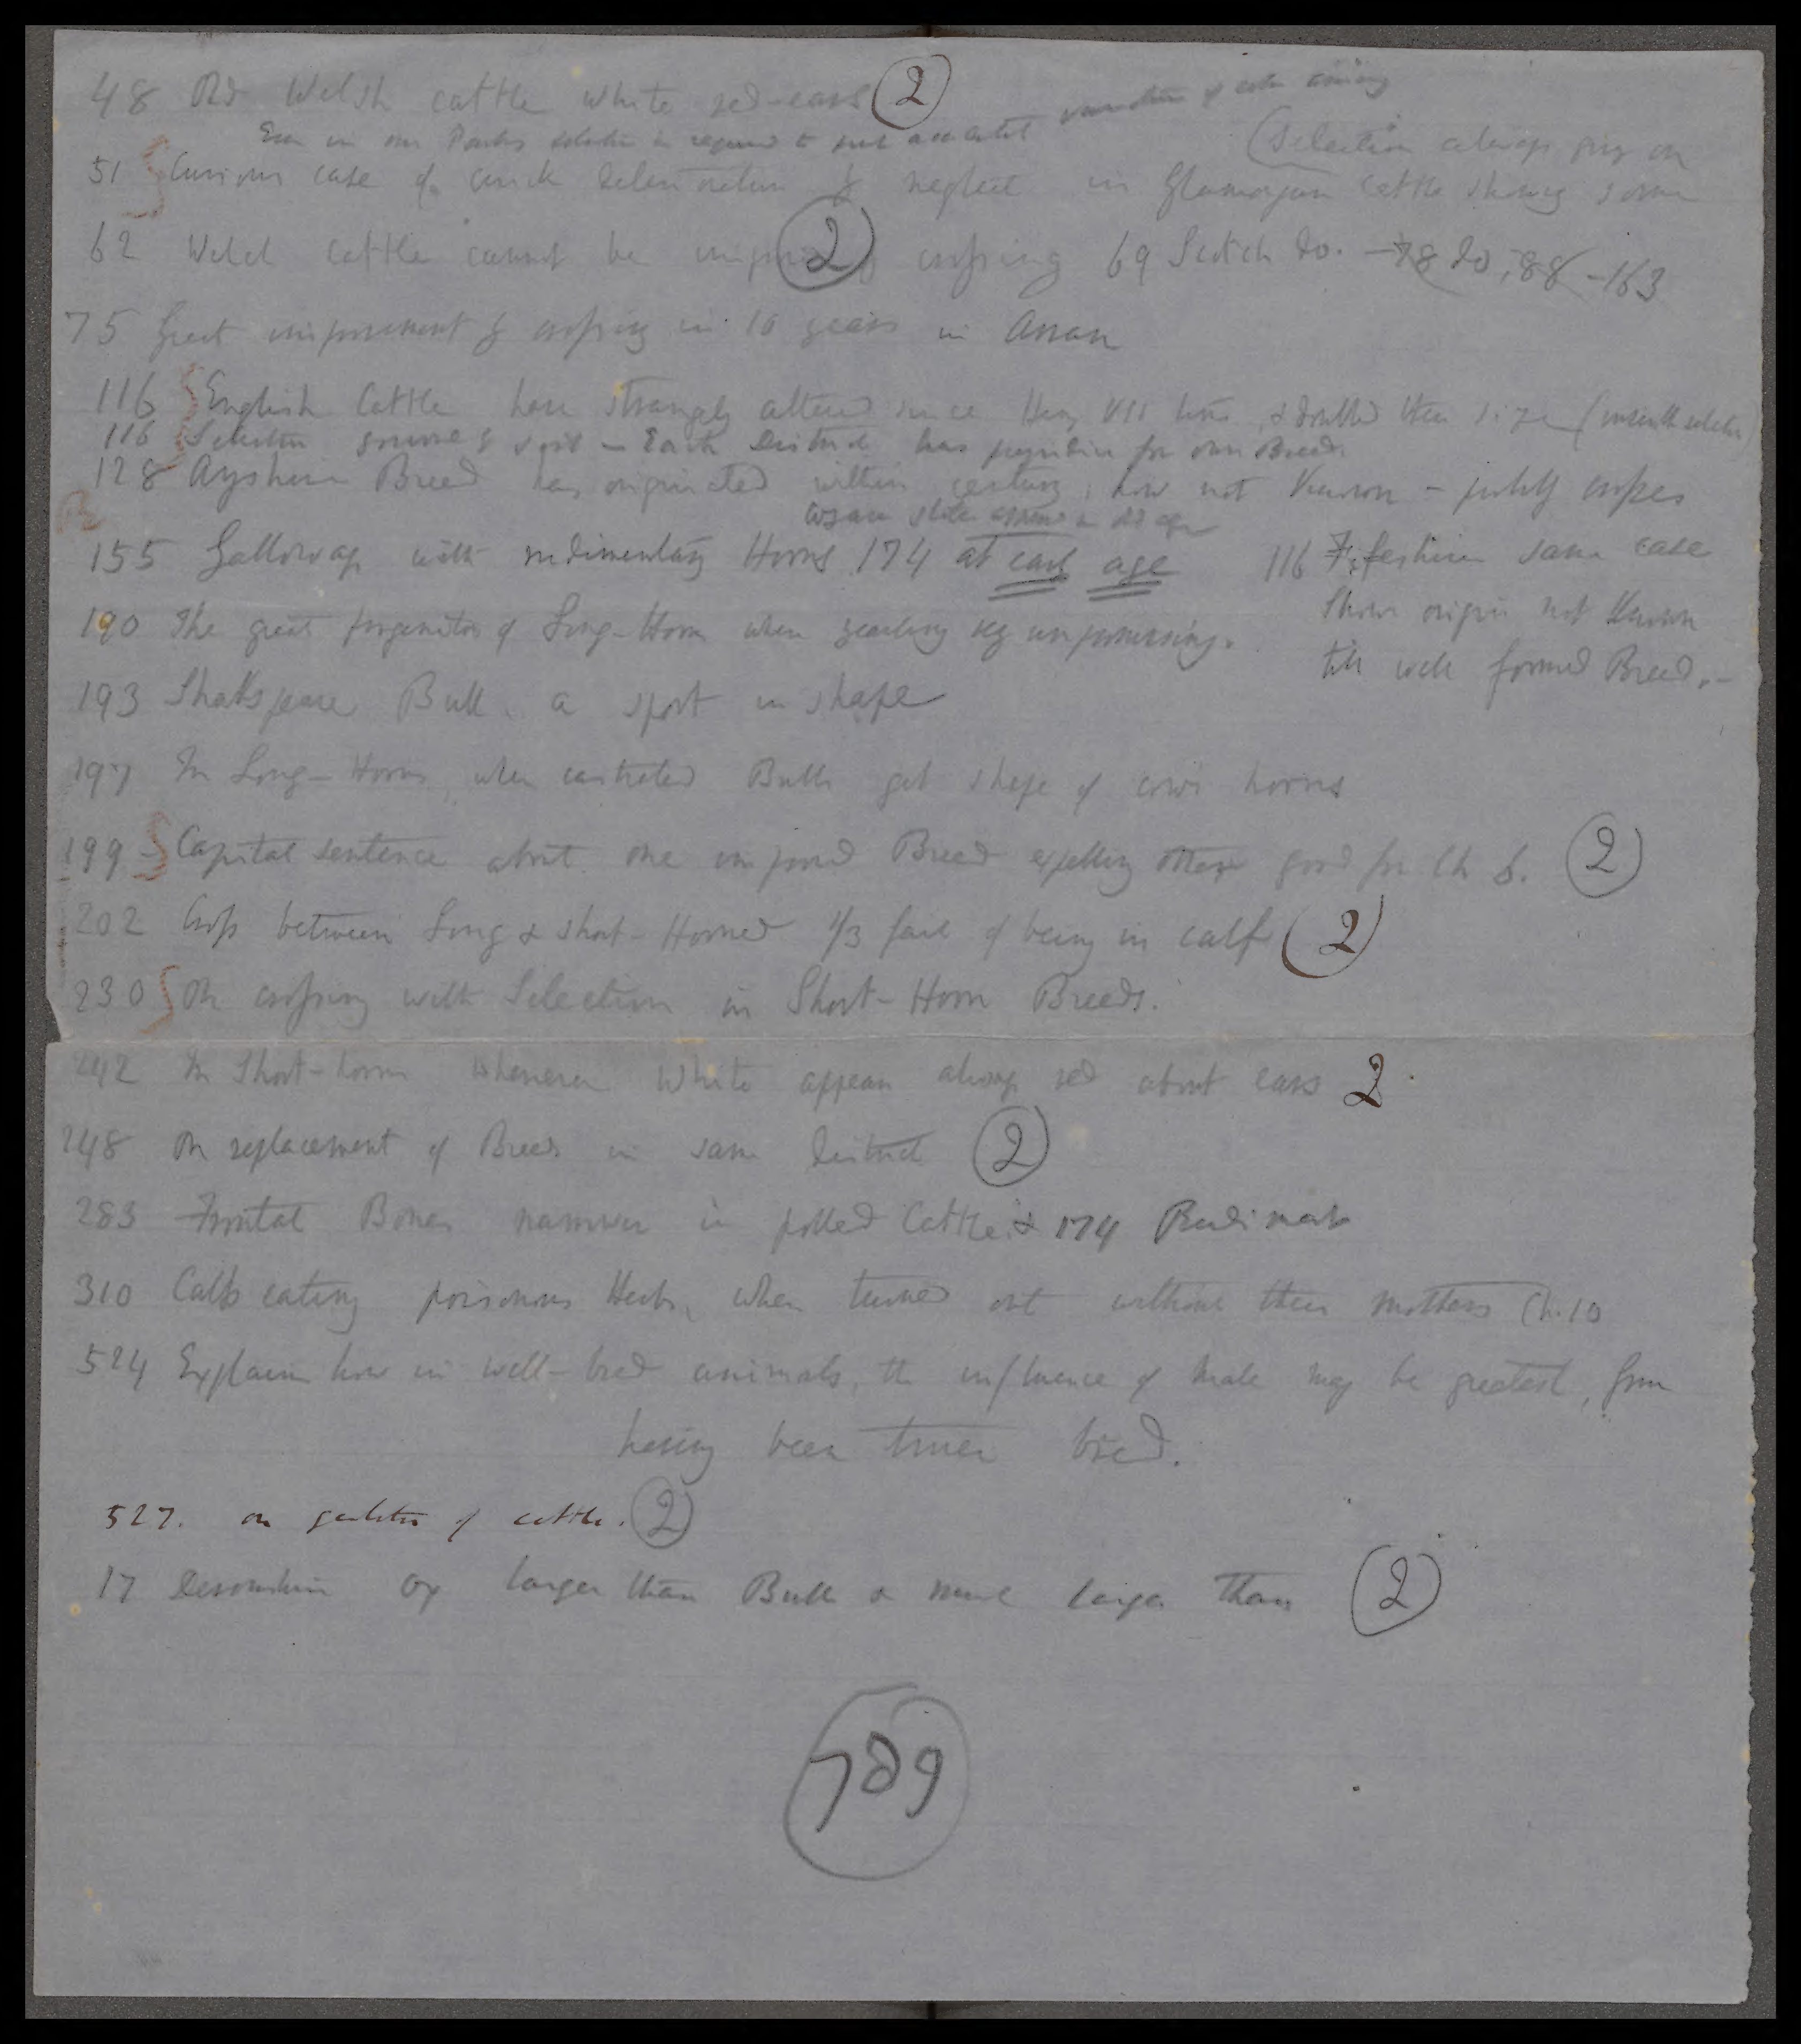 48 Old Welsh cattle white red-ears (2)
Even in our Parks selection is required to accidental variation of color arising
(Selection always going on
51 Curious case of quick deterioration by neglect in Glamorgan Cattle showing some
62 Welch Cattle cannot be improved (2) crossing 69 Scotch do. –78 do, 88 –163
75 Great improvement by crossing in 10 years in Arran
116 English Cattle have strangely altered since Henry VII time, & doubled their size (
116 Selection governed by soil — Each District has for own Breed.
128 Ayrshire Breed has originated within century, how not Known – crosses
155 Galloways with rudimentary Horns 174 at early age
116 Fifeshire same case
Shows origin not Known
till well formed Breed.–
190 The great progenitor of Long-Horn when yearling very unpromising.
193 Shakspeare Bull. a sport in shape
197 In Long-Horns, when castrated Bulls get shape of cows horns
199 – Capital sentence about one improved Breed expelling others good for Ch 6. (2)
202 Cross between Long & short-Horned 1/3 fail of being in calf (2)
230 On crossing with Selection in Short-Horn Breeds.
242 In Short-horns whenever White appears always red about ears 2
248 On replacement of Breeds in same District (2)
283 Frontal Bones narrower in polled Cattle & 174 Rudiments
310 Calfs eating poisonous Herbs, when turned out without their mothers Ch. 10
524 Explains how in well-bred animals, the influence of male may be greatest, from
having been truer bred.
527. on gestation of cattle. (2)
17 Devonshire Ox larger than Bull & much larger than (2)
789